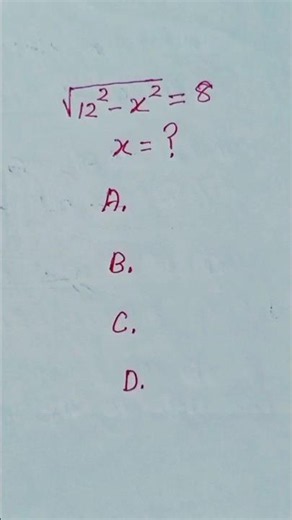 √12² - x² = 8
x = ?
A.
B.
C.
D.